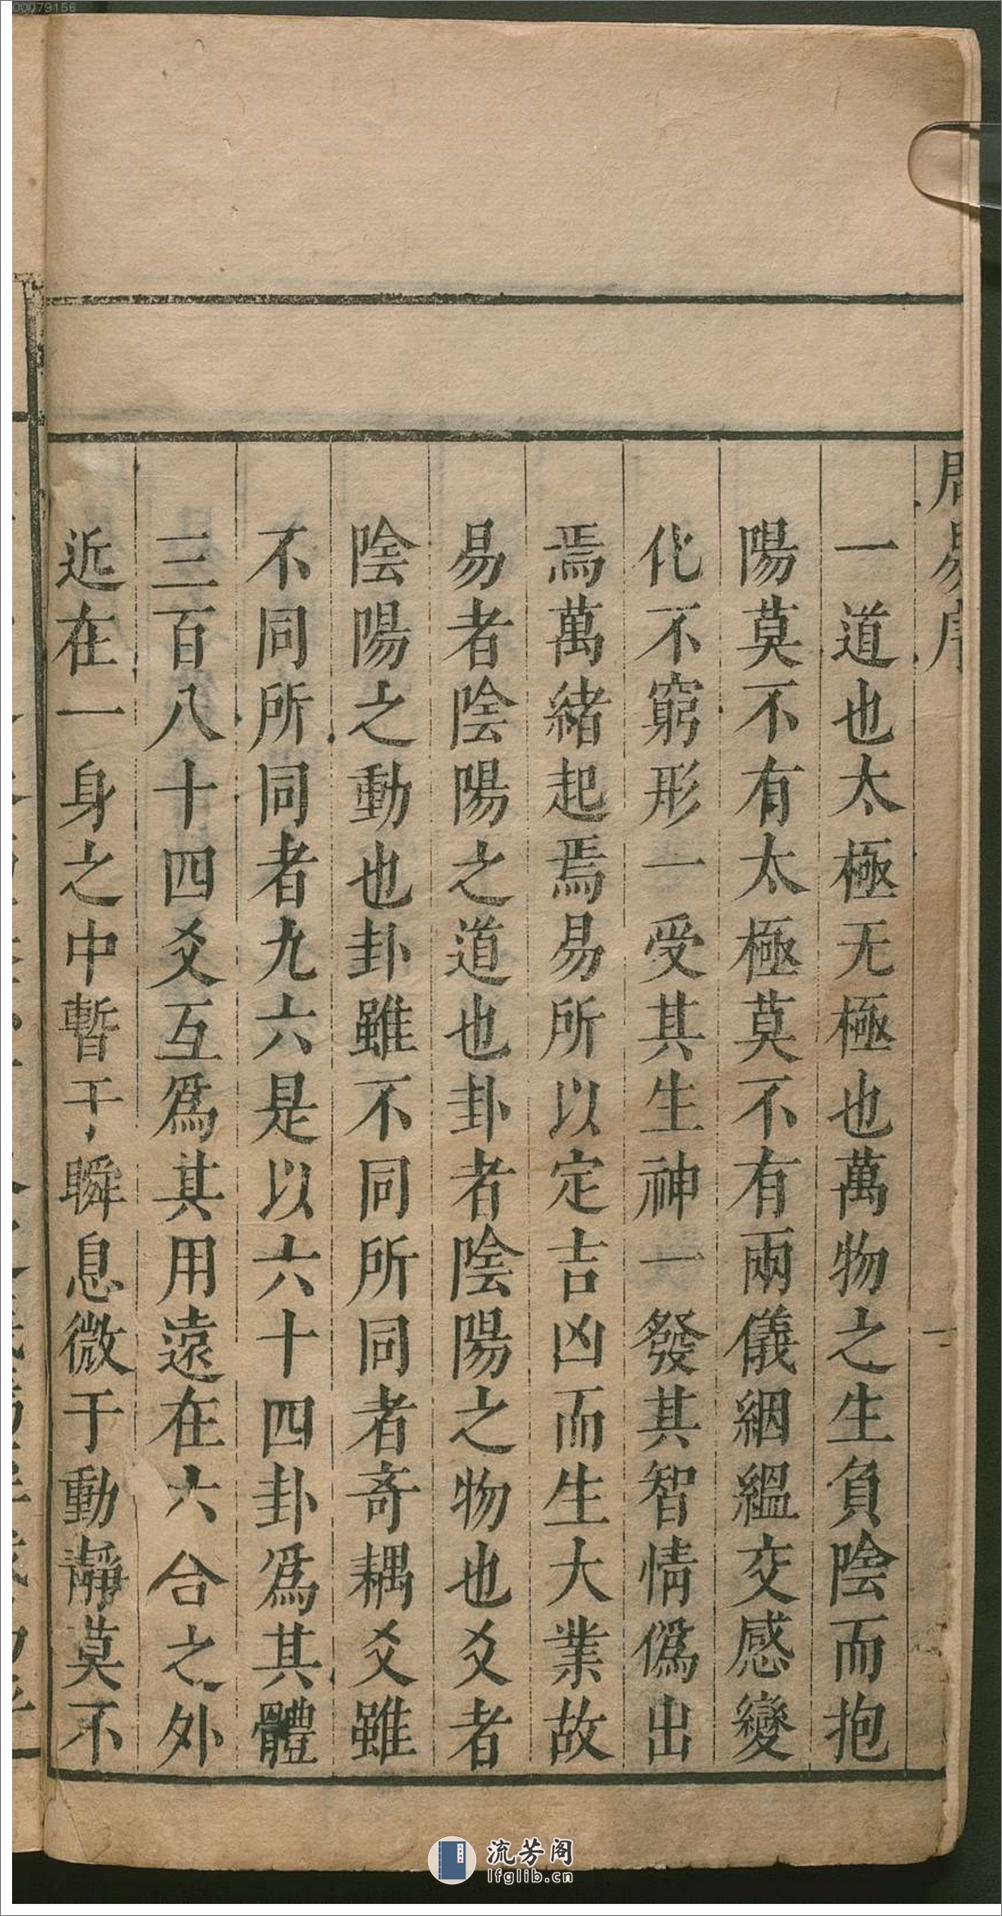 00079156
周易序
一
一道也太極无極也萬物之生負陰而抱
陽莫不有太極莫不有兩儀絪縕交感變
化不窮形一受其生神一發其智情僞出
焉萬緒起焉易所以定吉凶而生大業故
易者陰陽之道也卦者陰陽之物也爻者
陰陽之動也卦雖不同所同者奇耦爻雖
不同所同者九六是以六十四卦爲其體
三百八十四爻互爲其用遠在六合之外
近在一身之中暫于瞬息微于動靜莫不
流芳阁
lfglib.cn